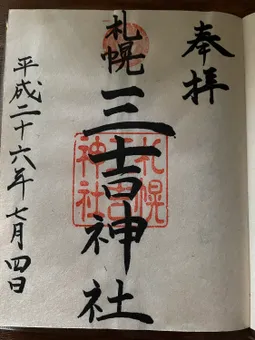 奉拝
札幌
三吉神社
平成二十六年七月四日
札幌
三吉
神社